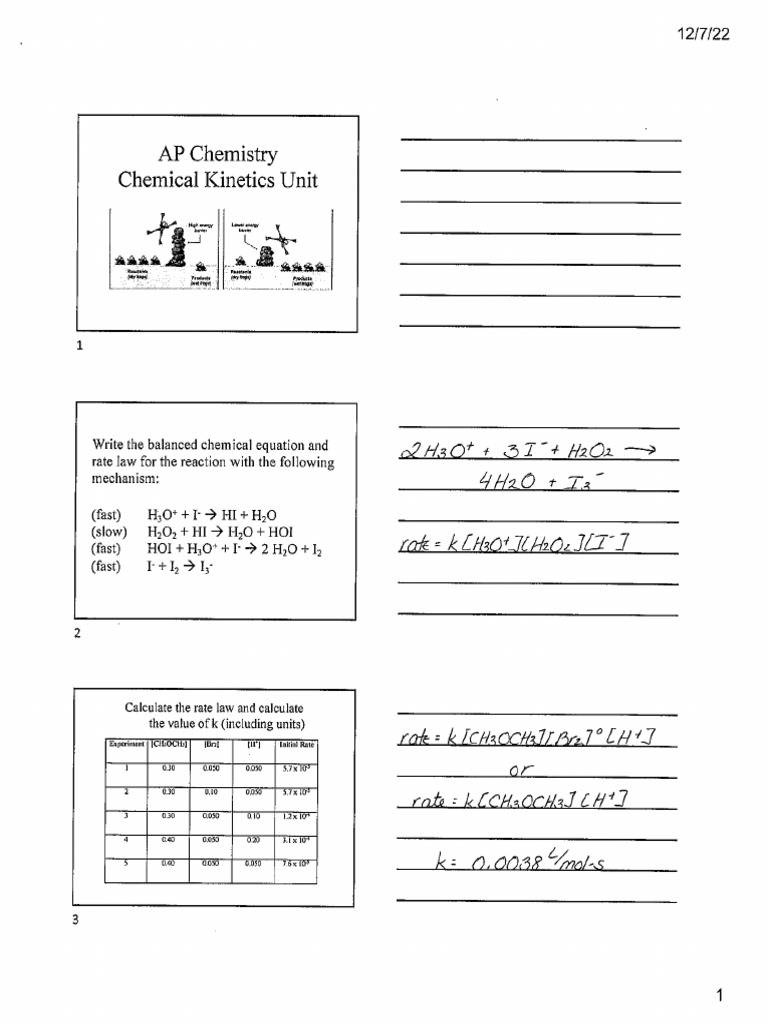 12/7/22
AP Chemistry
Chemical Kinetics Unit
High energy
barrier
Lower energy
barrier
Reactants
Products
Reactants
Products
1
Write the balanced chemical equation and
rate law for the reaction with the following
mechanism:
(fast) H₃O⁺ + I⁻ → HI + H₂O
(slow) H₂O₂ + HI → H₂O + HOI
(fast) HOI + H₃O⁺ + I⁻ → 2 H₂O + I₂
(fast) I⁻ + I₂ → I₃⁻
2H₃O⁺ + 3I⁻ + H₂O₂ →
4H₂O + I₃⁻
rate = k[H₃O⁺][H₂O₂][I⁻]
2
Calculate the rate law and calculate
the value of k (including units)
Experiment [CH₃OCH₃] [Br₂] [H⁺] Initial Rate
1 0.30 0.050 0.050 5.7 x 10⁻⁵
2 0.30 0.10 0.050 5.7 x 10⁻⁵
3 0.30 0.050 0.10 1.2 x 10⁻⁴
4 0.40 0.050 0.20 3.1 x 10⁻⁴
5 0.40 0.050 0.050 7.6 x 10⁻⁵
rate = k[CH₃OCH₃][Br₂]⁰[H⁺]
or
rate = k[CH₃OCH₃][H⁺]
k = 0.0038 L/mol-s
3
1